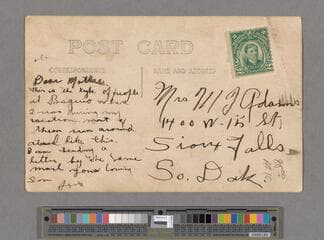 POST CARD
CORRESPONDENCE
NAME AND ADDRESS
Dear Mother,
This is the style of people
at Baguio where
I was during my
vacation most of
them run around
about like this.
I am sending a
letter by the same
mail your loving
Son
Mrs M J Adams
1400 W-15 St
Sioux Falls
So. Dak.